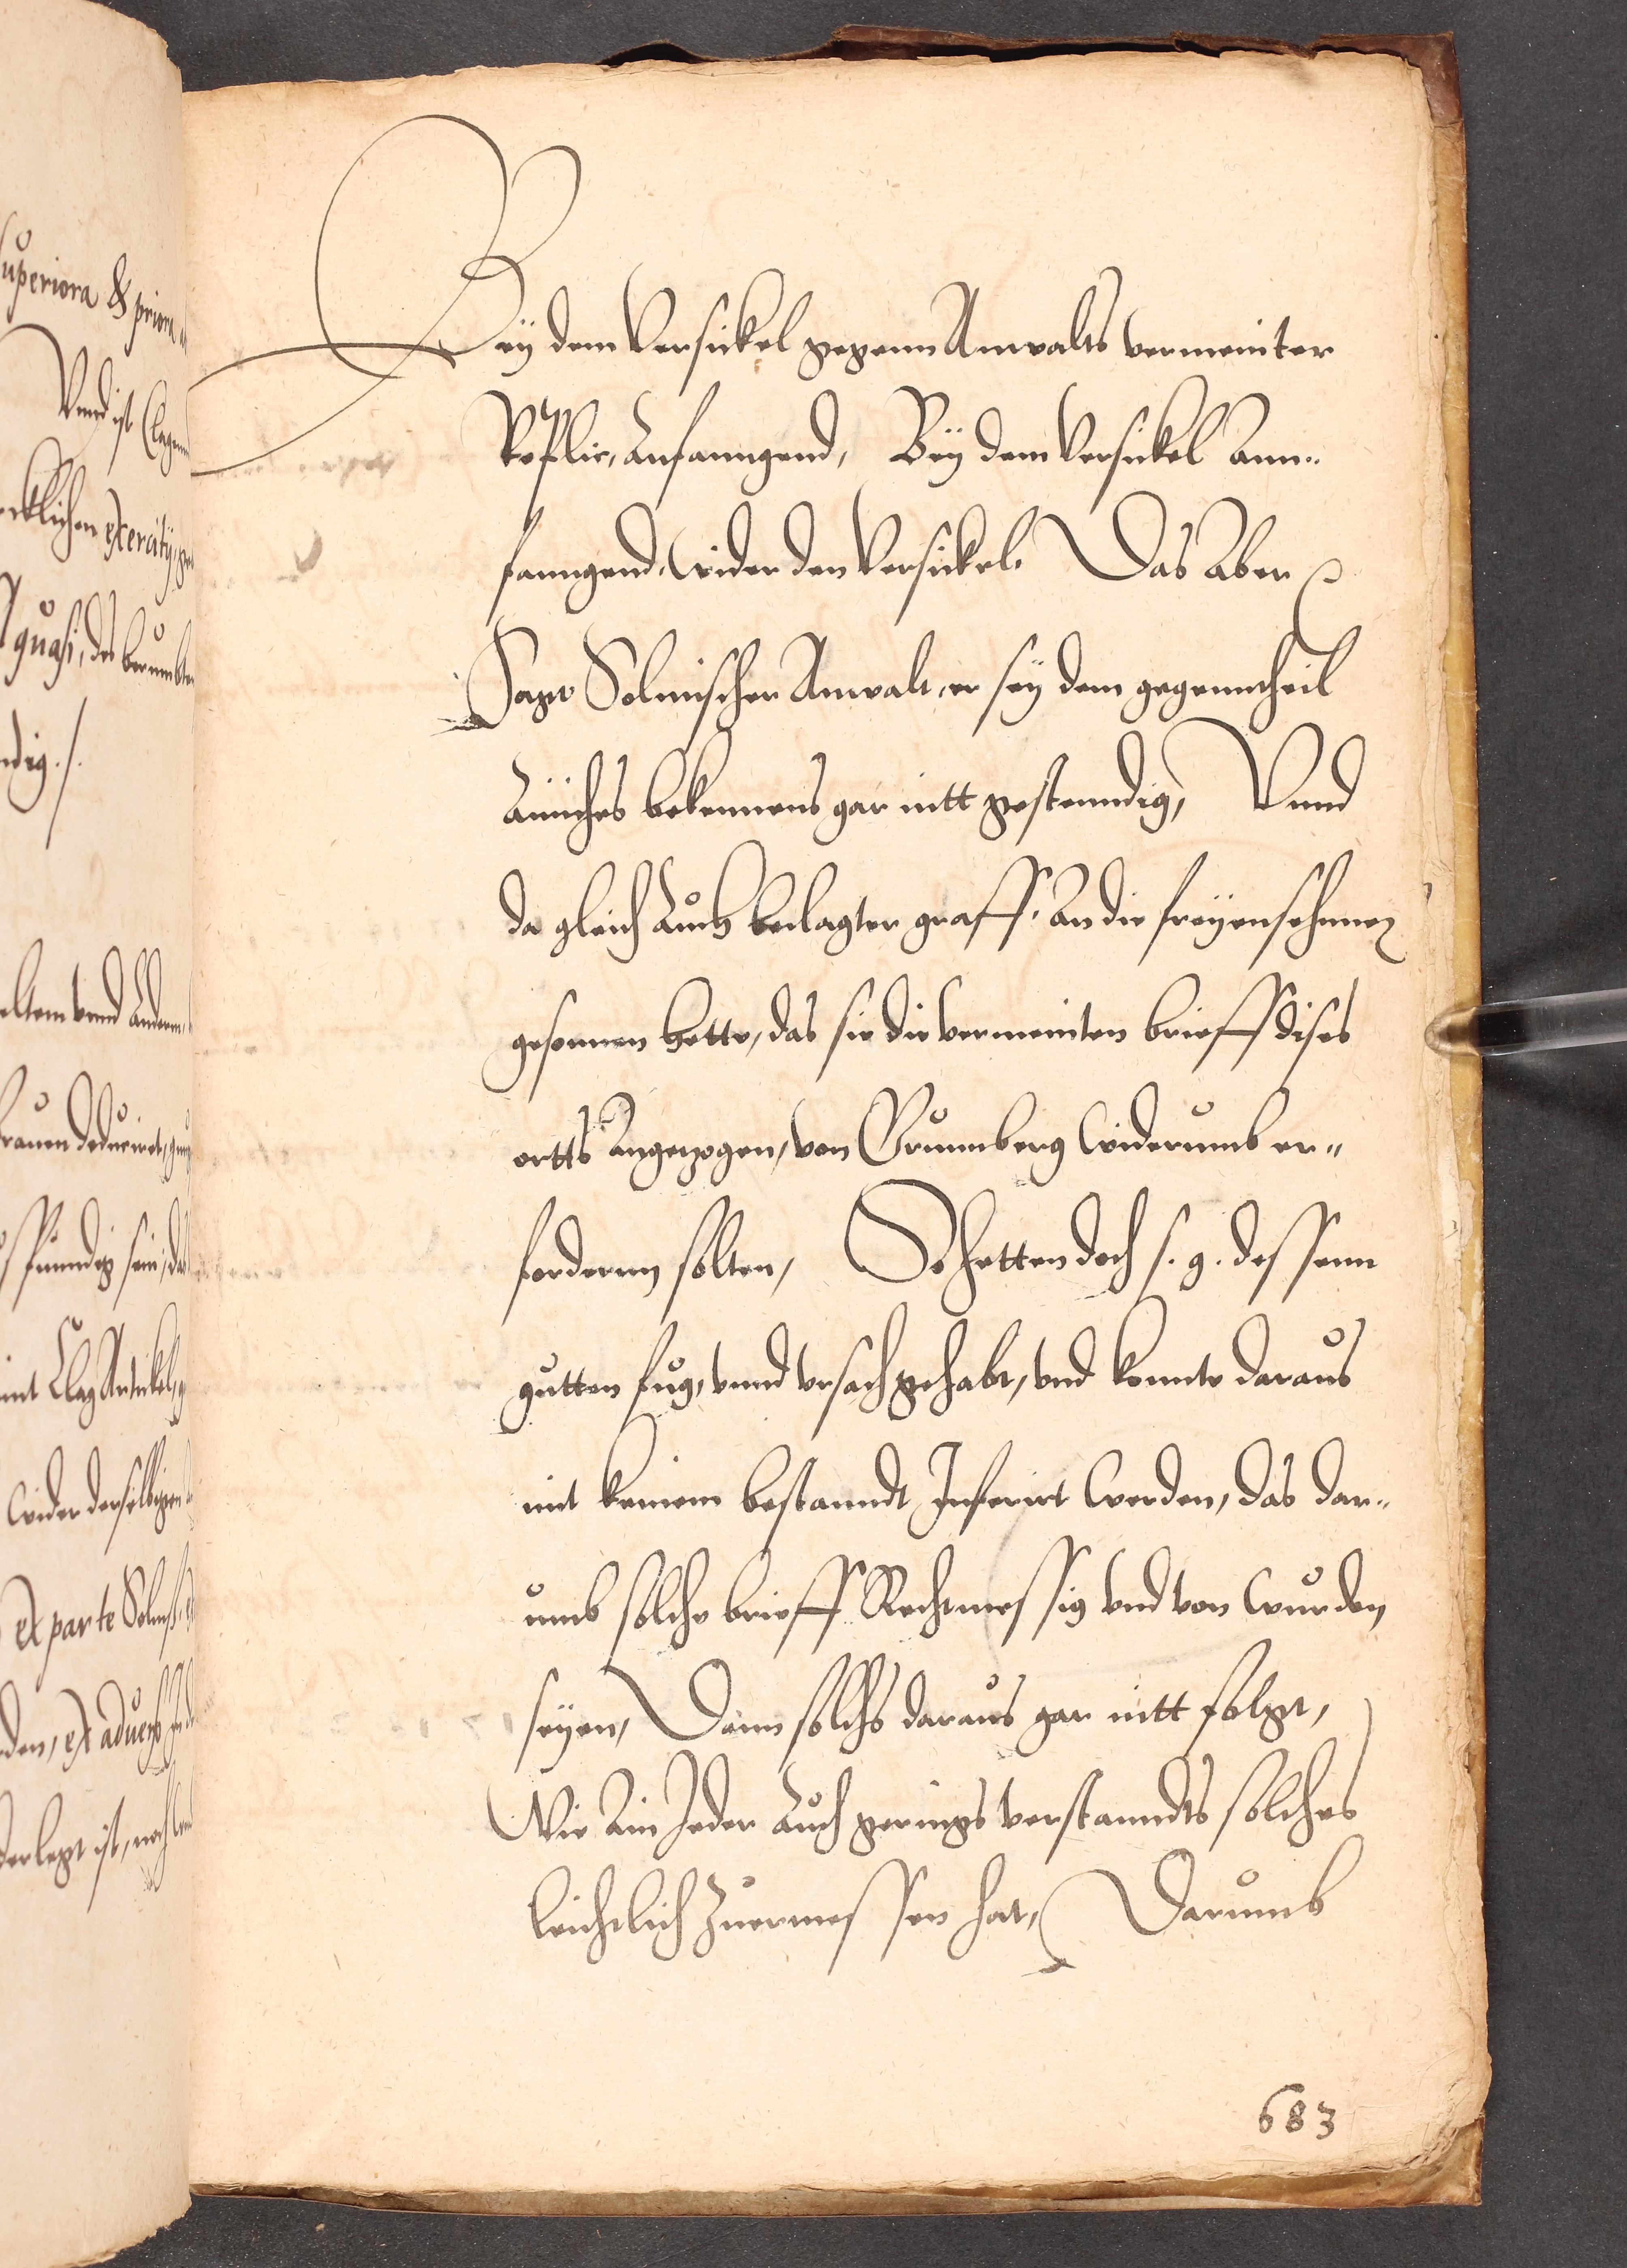 superiora & priora
Vnnd ist Clagenn
quasi, des berumbten
ndig ./.
eltem vnnd Andern
frauen deduciret,
funndig sein, das
int Clag Artickel
wider derselbigen
ex parte Solms
den, ex aduerso
derlegt ist, noch
Bey dem Versickel gegenn Anwalts vermeinter
Replic, Anfanngend, Bey dem Versickel Ann¬
fanngend, Wider den Versickel. Das Aber
Sagt Solmischer Anwalt, er sey dem gegenntheil
Ainiches bekennens gar nitt gestenndig, Vnnd
da gleich Auch beclagter graff, An die freyenseheimer
gesonnen hette, das sie die vermeinten brieff dises
ortts Angezogen, von Grumberg widerumb er¬
fordernn solten, So hetten doch s. g. dessenn
gutten fug, vnnd vrsach gehabt, vnd konnte daraus
mit keinem bestanndt Inferirt werden, das dar¬
umb solche brieff Rechtmessig vnd von wurden
seyen, Dann solchs daraus gar nitt folget,
Wie Ain Jeder Auch gerings verstanndts solches
leichtlich Zuermessen hat, Darumb
683